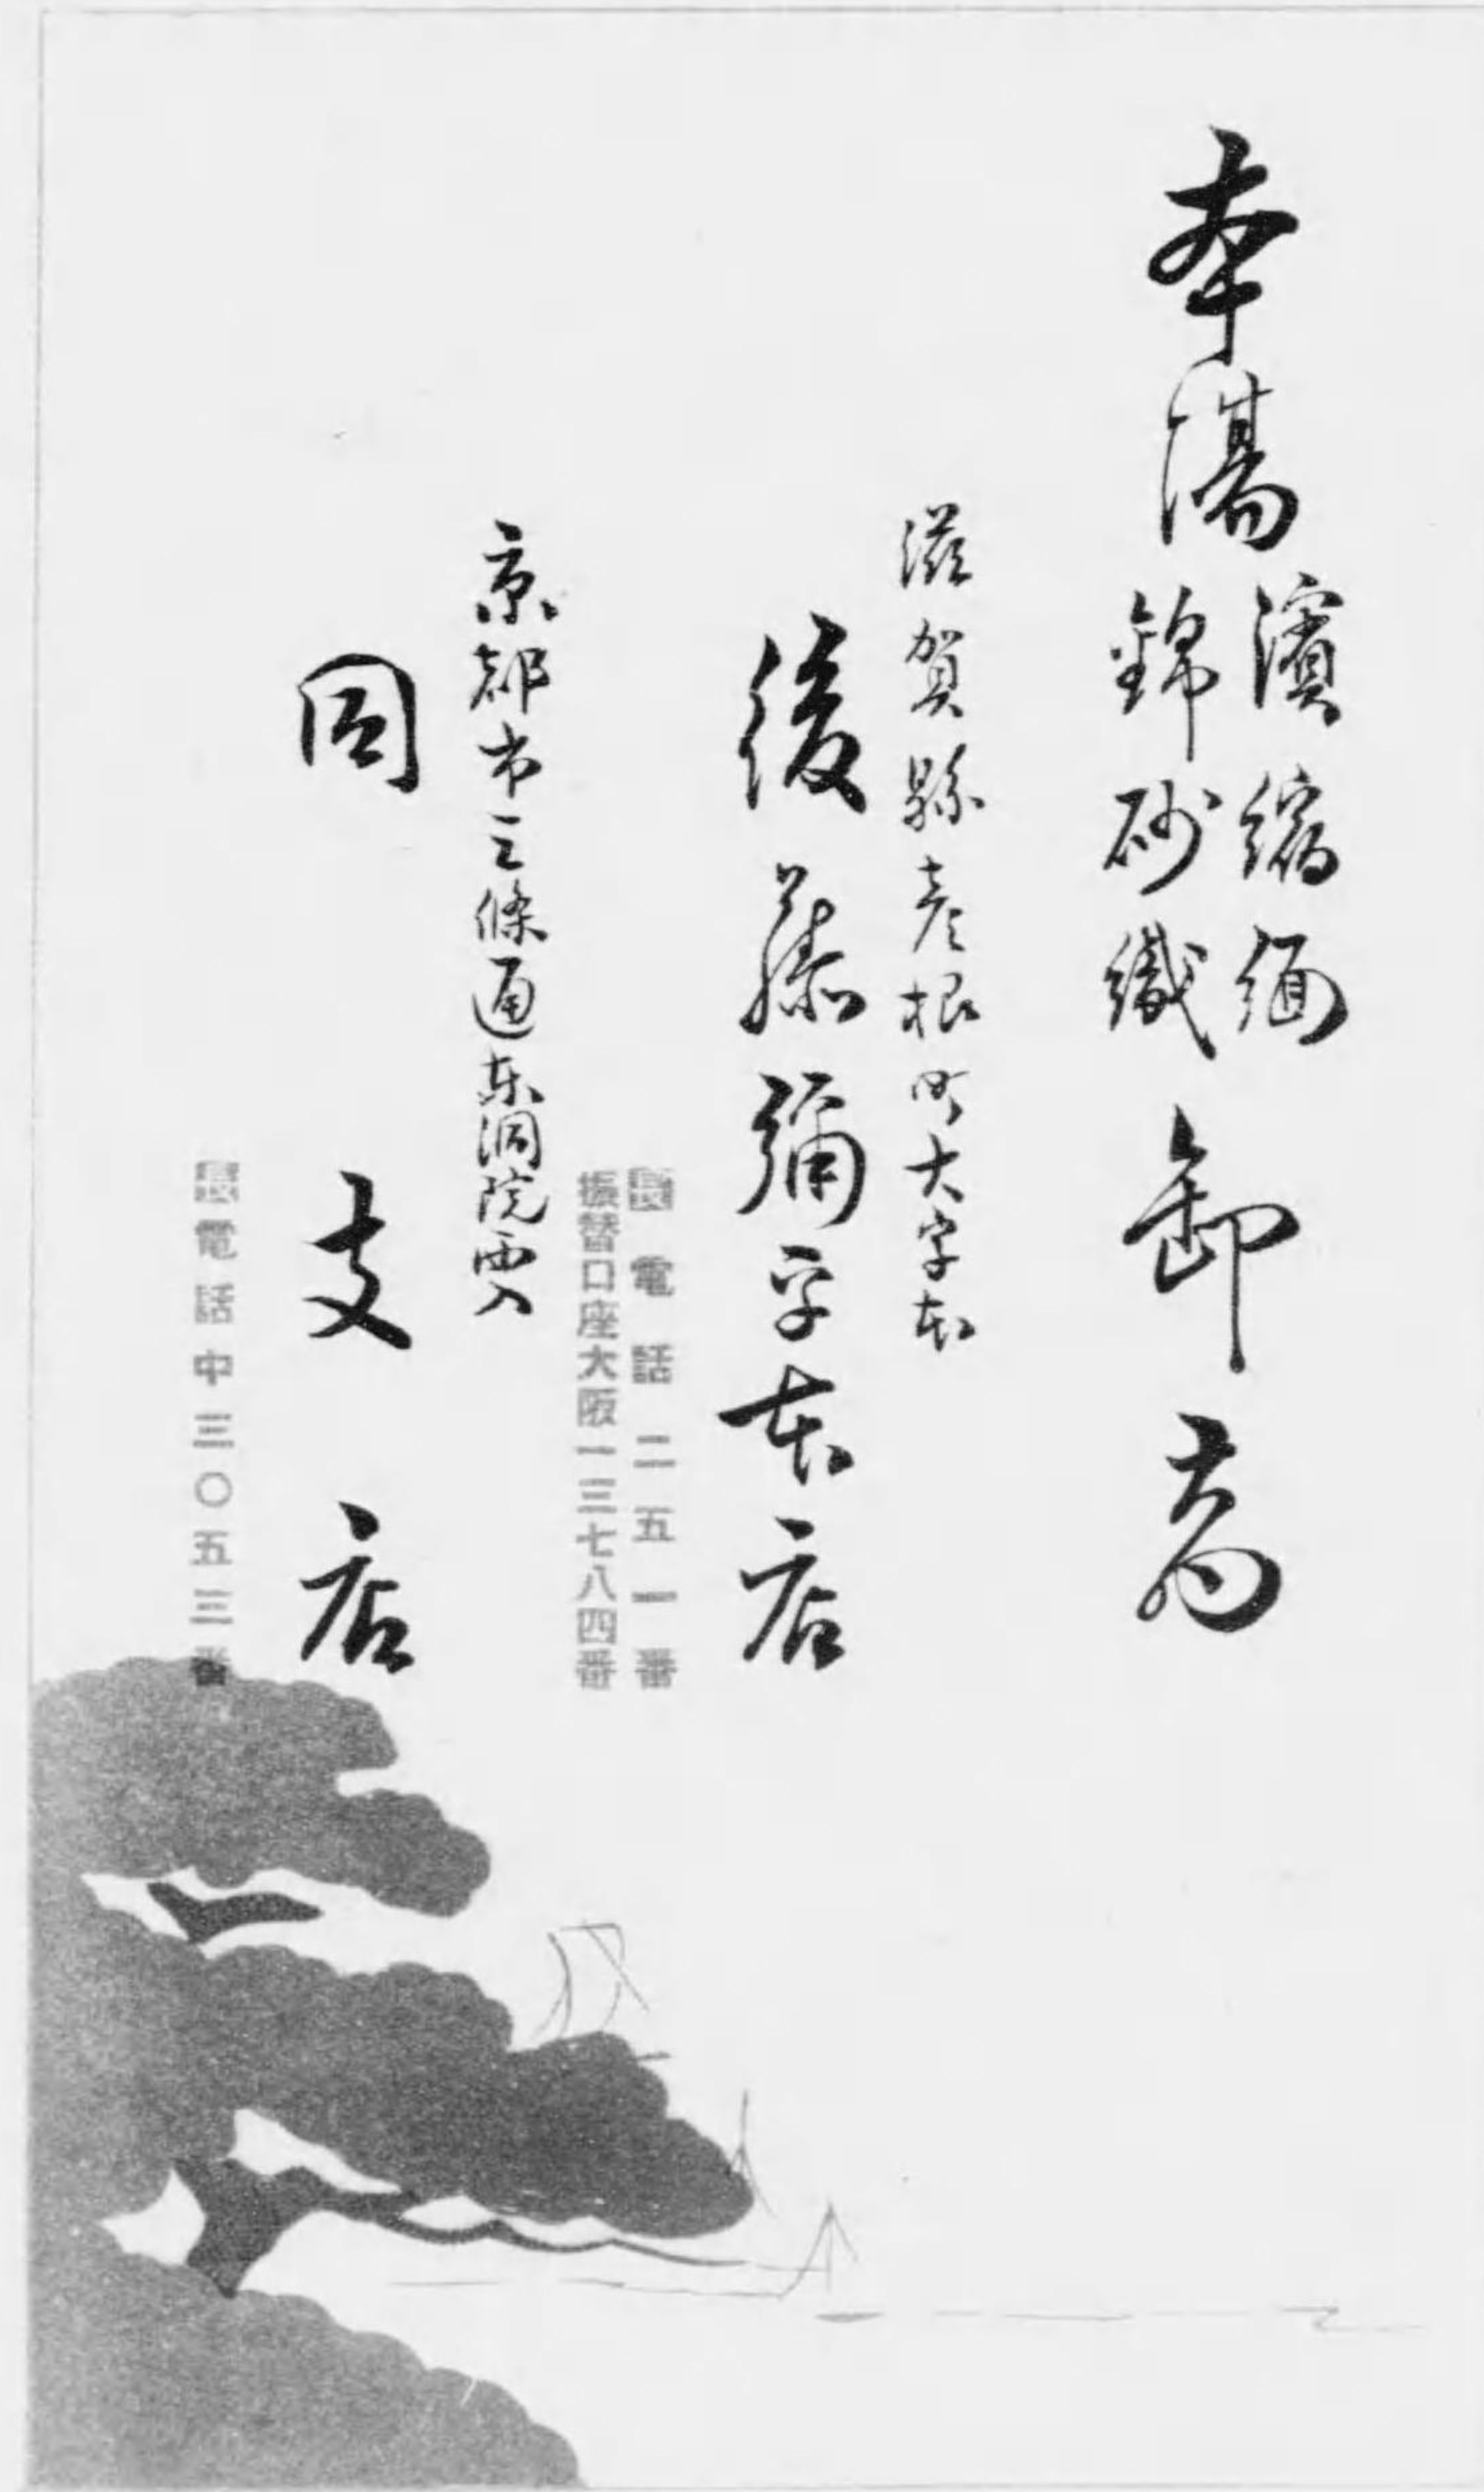 本場
濱縮緬
錦砂織
卸商
滋賀縣彦根町大字
後藤彌平本店
電話二五一番
振替口座大阪一三七八四番
京都市三條通東洞院西入
同支店
電話中三〇五三番